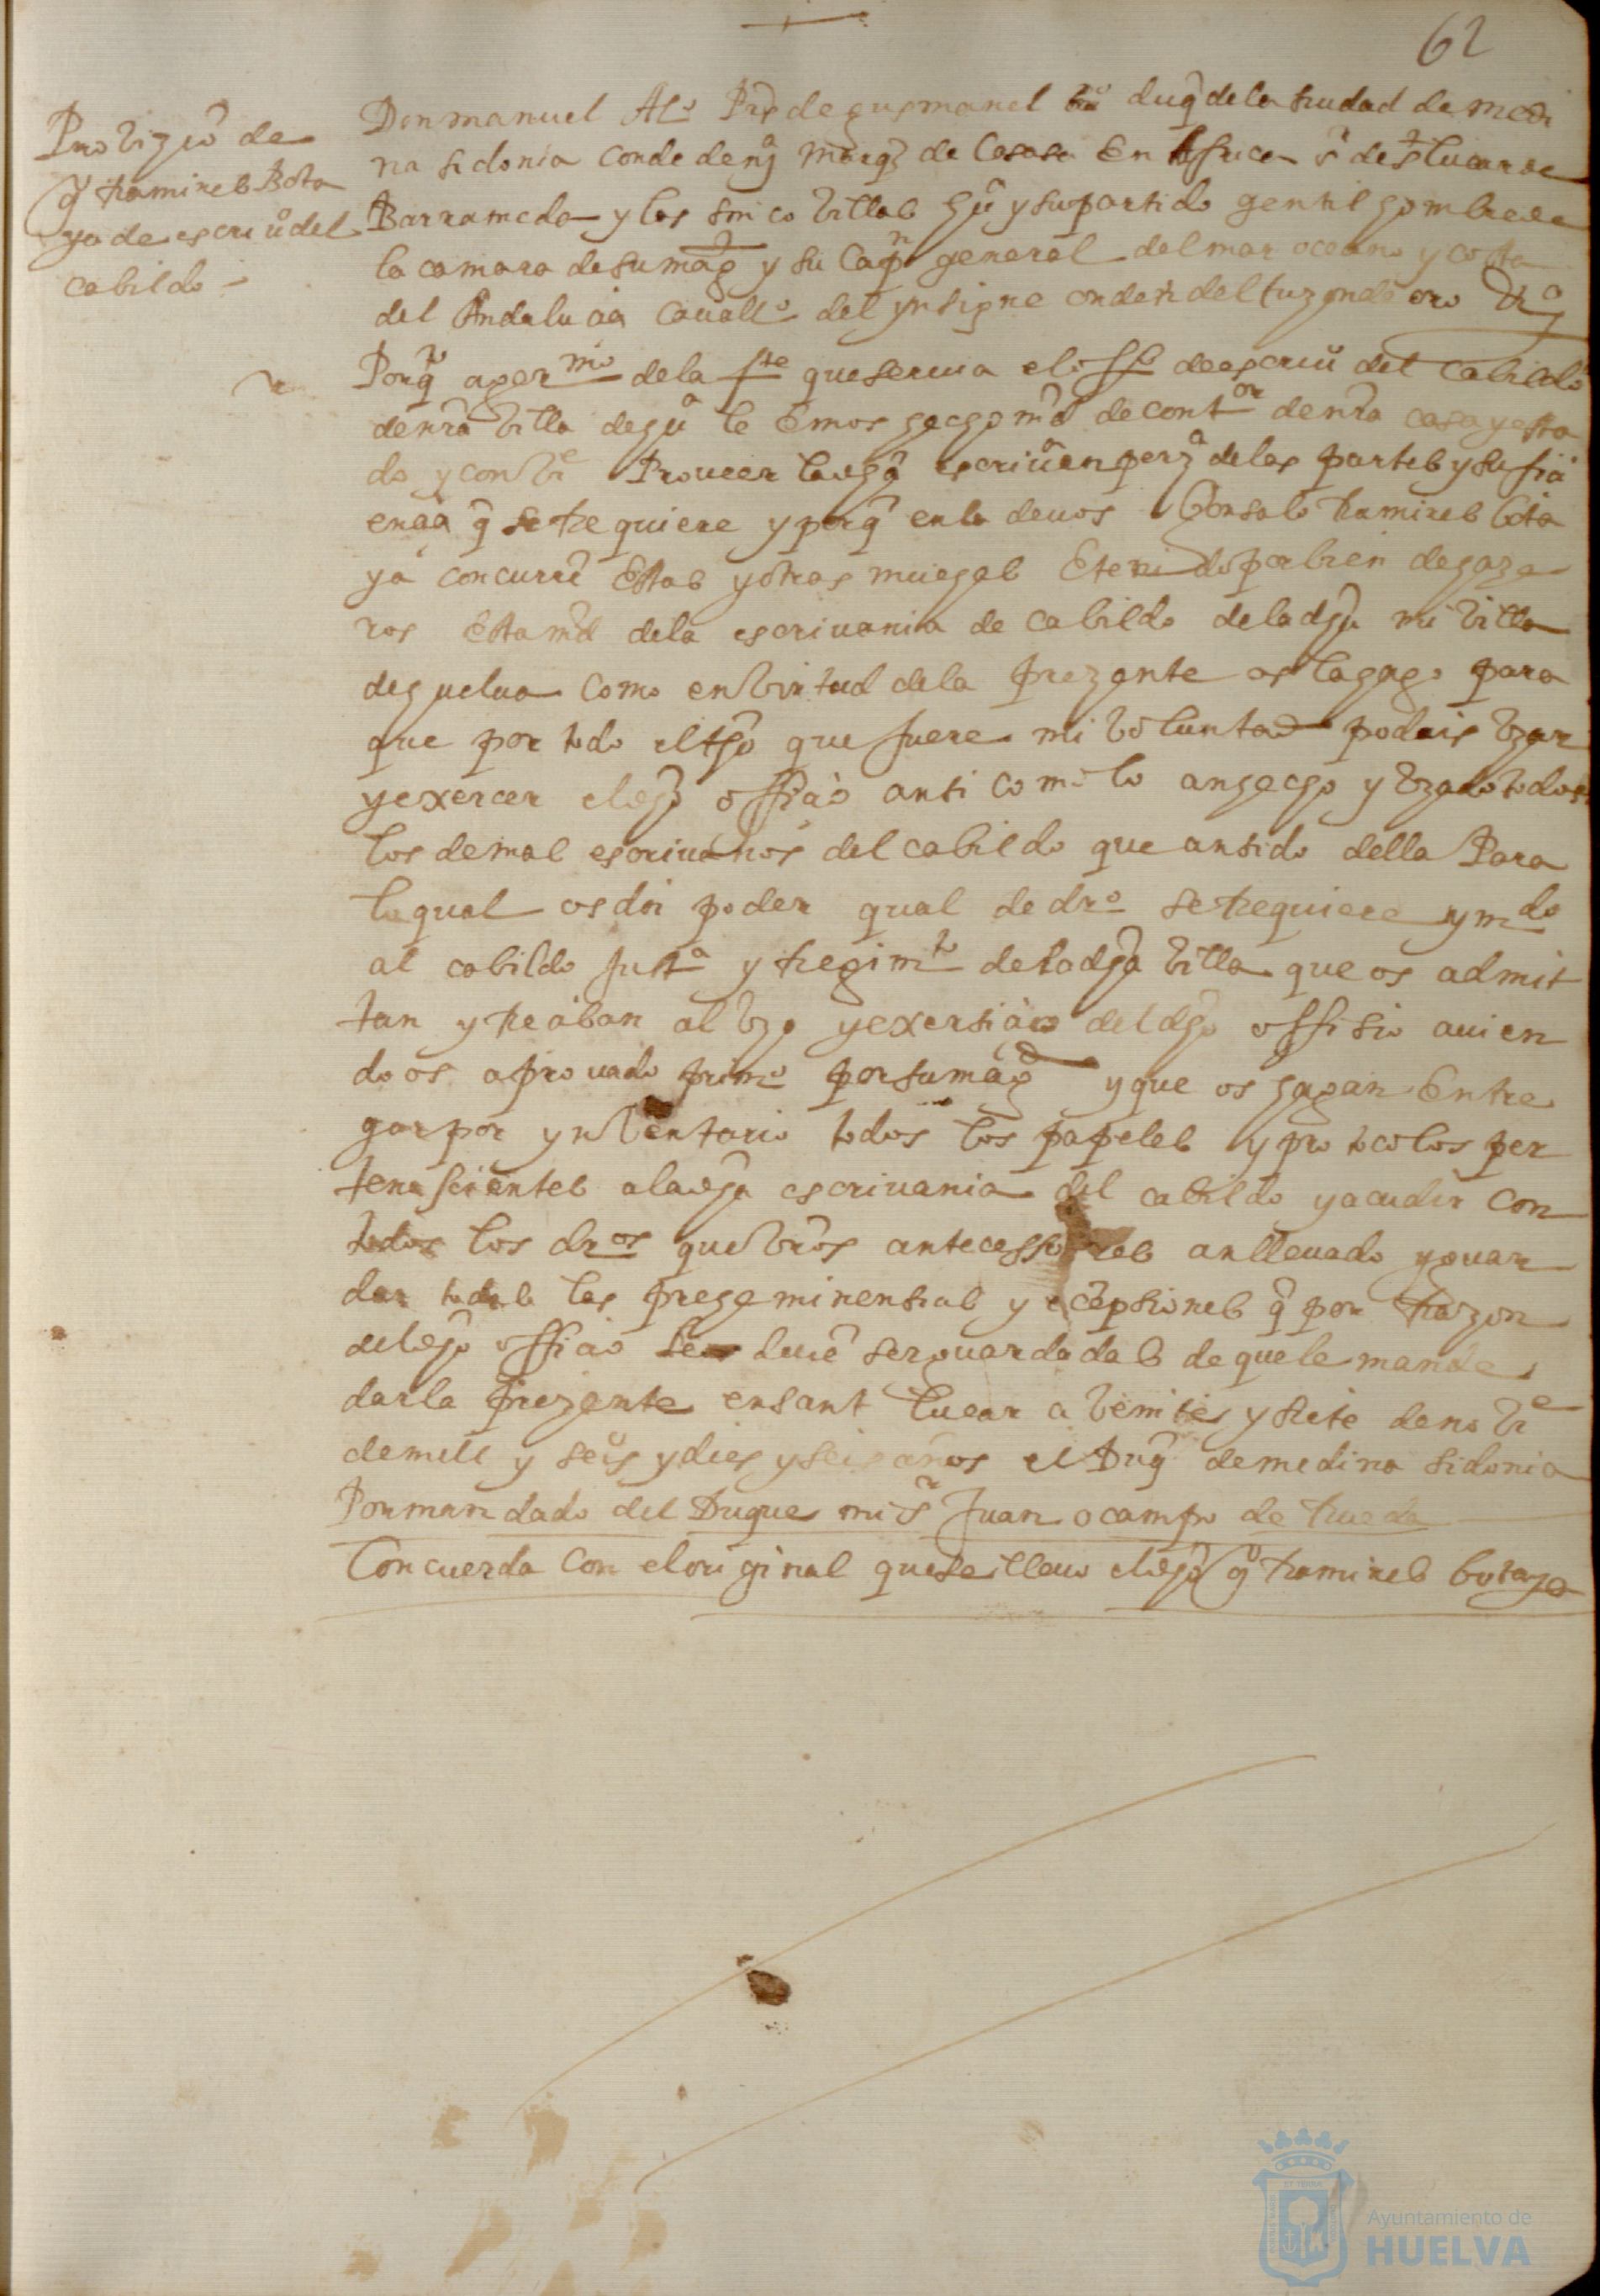 62
Provizio de
Gº Ramires Bota
yo de escriuº del
cabildo
Don manuel Alº Prs de gusman el buº duq de la siudad de medi
na sidonia conde de nª marqs de Casasa En Africa sr de st lucar de
Barrameda y las sinco villas guª y su partido gentil hombre de
la camara de su magd y su Capn general del mar oceano y costa
del Andalucia Cauallº del ynsigne orden del tuzon de oro &ª
Porqto a germº de la fte que seruia el offº de escriuº del cabildo
de nra villa de guª le Emos hecho md de contor de nra casa y esta
do y conve Proueer la dha escriuª en perª de las partes y sufiçi
ençia q se Requiere y porq en la de uos Gonsalo Ramires bota
yo concurrē Estas y otras muchas E tenido por bien de haze
ros Esta md de la escriuania de cabildo de la dha mi villa
de guelua como en virtud de la prezente os la hago para
que por todo el tpo que fuere mi voluntad podais vzar
y exercer el dho offiçio anti como lo an hecho y vzado todos
los demas escriuanos del cabildo que an sido della Para
lo qual os doi poder qual de drº se Requiere y mdo
al cabildo justª y Regimto de la dha villa que os admit
tan y Reçiban al vzo y exersiçio del dho offisio auien
do os aprouado primº por su magd y que os hagan Entre
gar por ynventario todos los papeles y protocolos per
tenesientes a la dha escriuania del cabildo y acudir con
todos los dros que vros antecessores an lleuado y guar
dar todas las preheminensias y ecepsiones q por Razon
del dho offiçio deuē ser guardadas de que le mande
dar la prezente en sant lucar a veinte y siete de nove
de mill y seisº y dies y seis anos el Duq de medina sidonia
Por mandado del Duque mi sr Juan ocampo de Rueda
Concuerda con el original que se lleuo el dho gº Ramires botayo
Ayuntamiento de
HUELVA